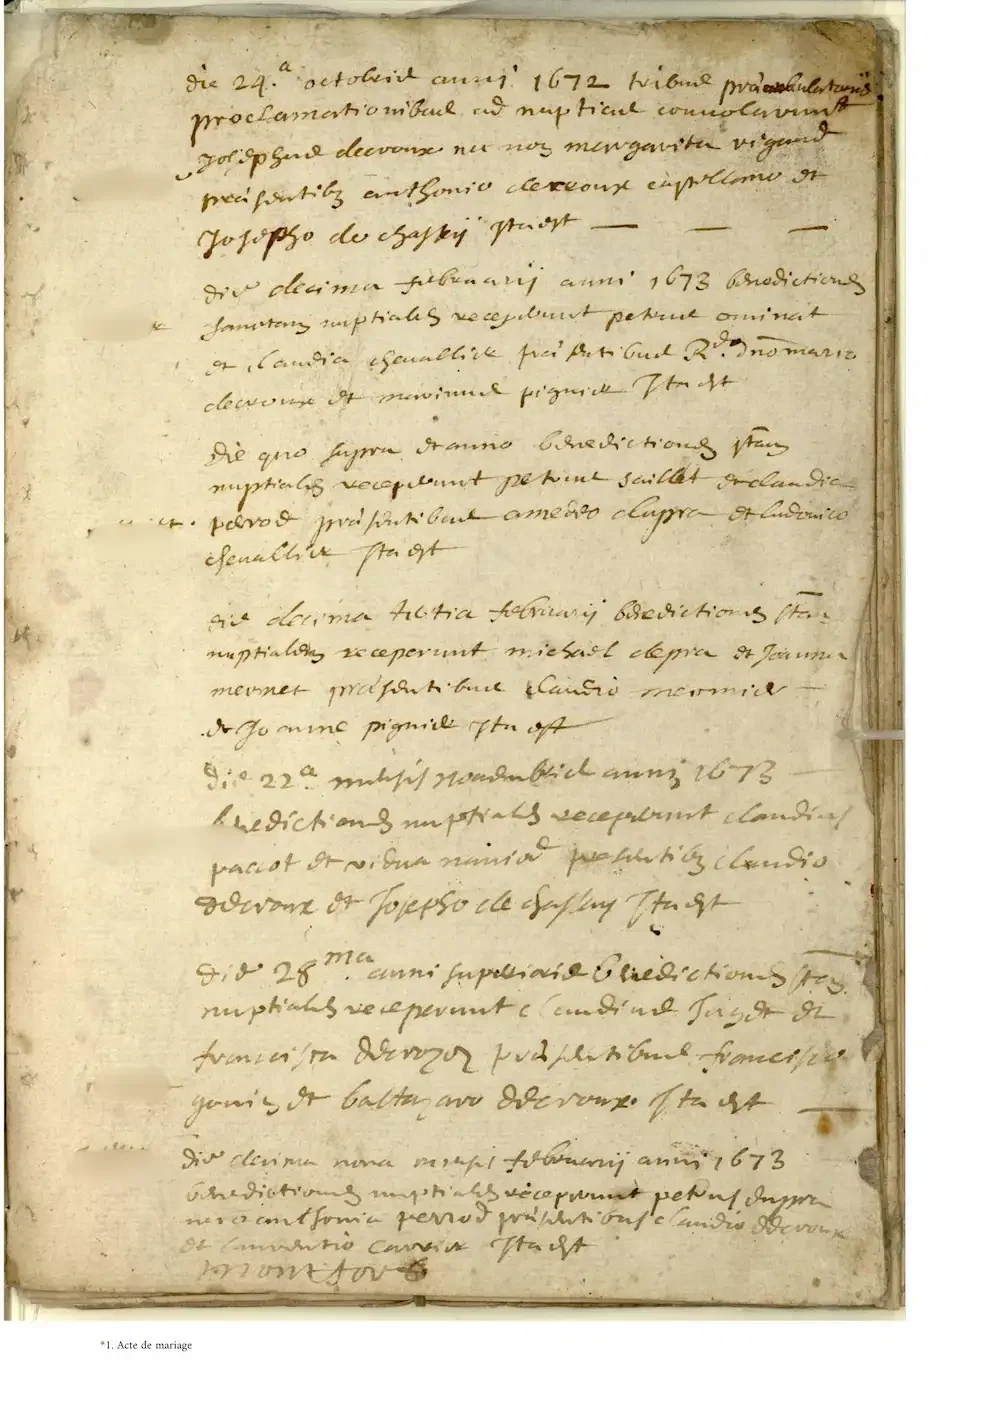 die 24.a octobris anni 1672 tribus præambulatoriis
proclamationibus ad nuptias convolarunt
Josephus decroux nec non margarita vigand
præsentibus anthonio decroux castellano et
Josepho de chassey Ita est
die decima februarij anni 1673 benedictionem
nuptialem receperunt petrus
et claudia chevallier præsentibus Rdo. dno mario
decroux et pignier Ita est
die quo supra et anno benedictionem stam
nuptialem receperunt petrus saillet et claudia
perrod præsentibus amedeo dupra et ludovico
chevallier Ita est
die decima tertia februarij benedictionem stam
nuptialem receperunt michael depra et Joanna
mermet præsentibus claudio mermier
et Joanne pignier Ita est
die 22a mensis novembris anni 1673
benedictionem nuptialem receperunt claudius
paccot et vidua presentibus claudio
decroux et Josepho de chassey Ita est
die 28ma. anni superioris benedictionem stam
nuptialem receperunt claudius et
francisca decrozon præsentibus francisco
et baltazaro decroux. Ita est
die decima nona mensis februarij anni 1673
benedictionem nuptialem receperunt petrus dupra
nec anthonia perrod præsentibus claudio decroux
et laurentio carrier Ita est
*1. Acte de mariage